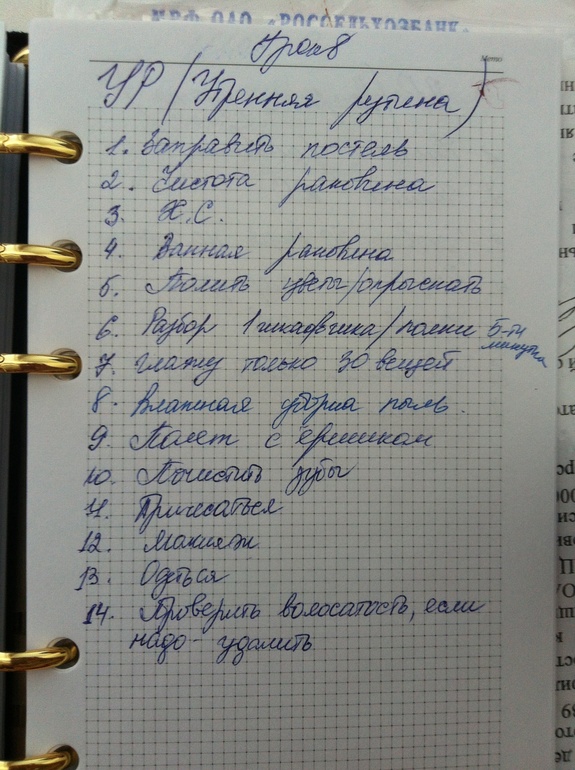 МРФ ОАО «РОССЕЛЬХОЗБАНК»
Урок 8
Memo
УР (Утренняя рутина)
1. Заправить постель
2. Чистота раковина
3. Х.С.
4. Ванная раковина
5. Полить цветы/опрыскать
6. Разбор 1 шкафчика/полки 5-ти
минутка
7. Глажу только 30 вещей
8. Влажная уборка пыль.
9. Полет с ёршиком
10. Почистить зубы
11. Причесаться
12. Макияж
13. Одеться
14. Проверить волосатость, если
надо - удалить